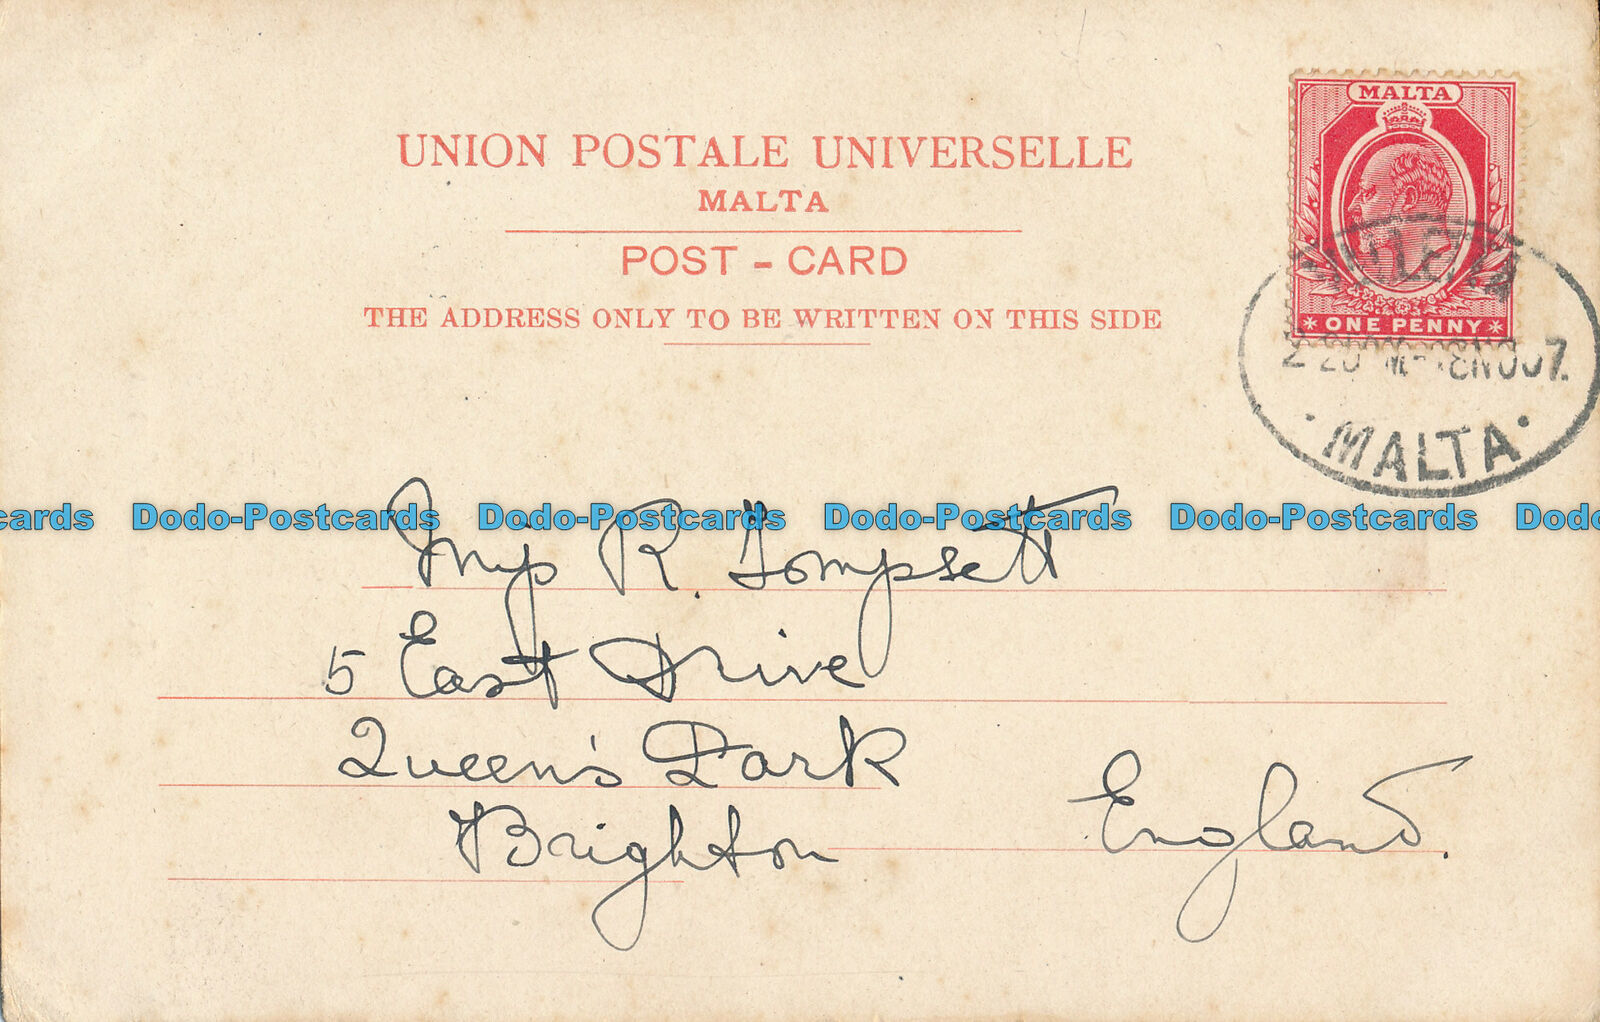 UNION POSTALE UNIVERSELLE
MALTA
POST - CARD
THE ADDRESS ONLY TO BE WRITTEN ON THIS SIDE
MALTA
ONE PENNY
MALTA
Miss R. Tompsett
5 East Drive
Queen's Park
Brighton
England.
cards Dodo-Postcards Dodo-Postcards Dodo-Postcards Dodo-Postcards Dodo